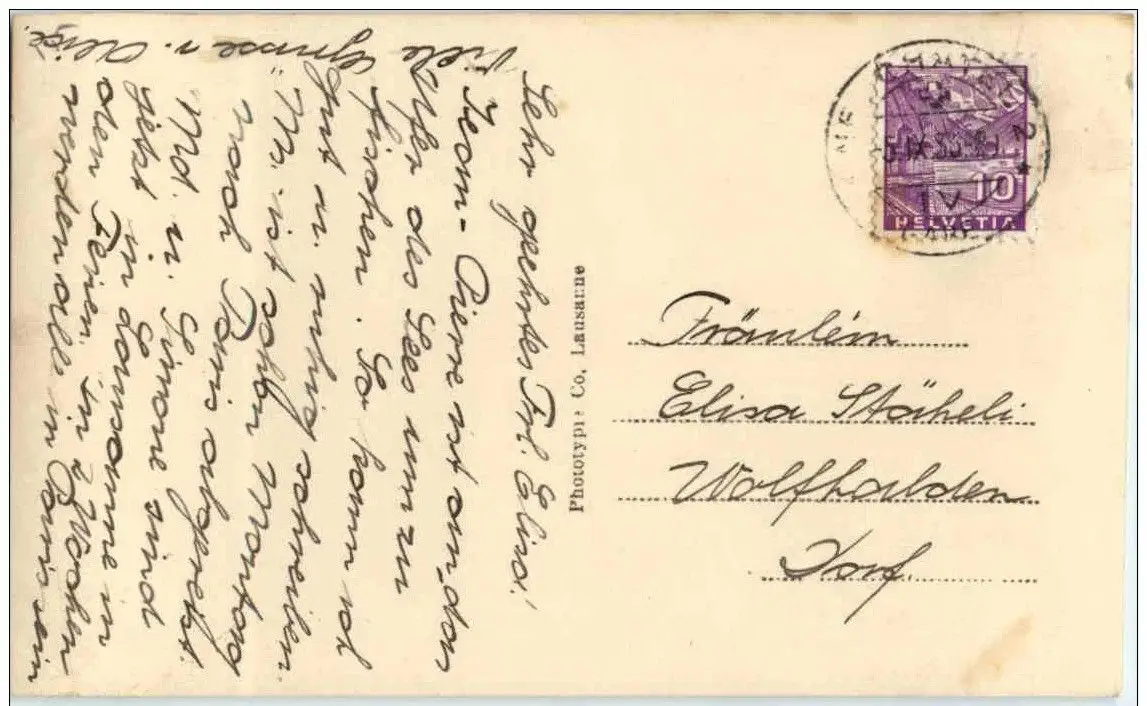 Sehr geehrtes Frl. Elisa!
Jean-Pierre ist an den
Ufer des Sees um zu
fischen. So kann ich
gut u. ruhig schreiben.
M. ist schon Montag
nach Paris abgereist.
Md. u. Simone sind
jetzt in Lausanne in
den Ferien. In 2 Wochen
werden alle in Paris sein
Viele Grüsse v. Alice.
Phototypie Co, Lausanne
HELVETIA
10
Fräulein
Elisa Stäheli
Wolfhalden
Dorf.